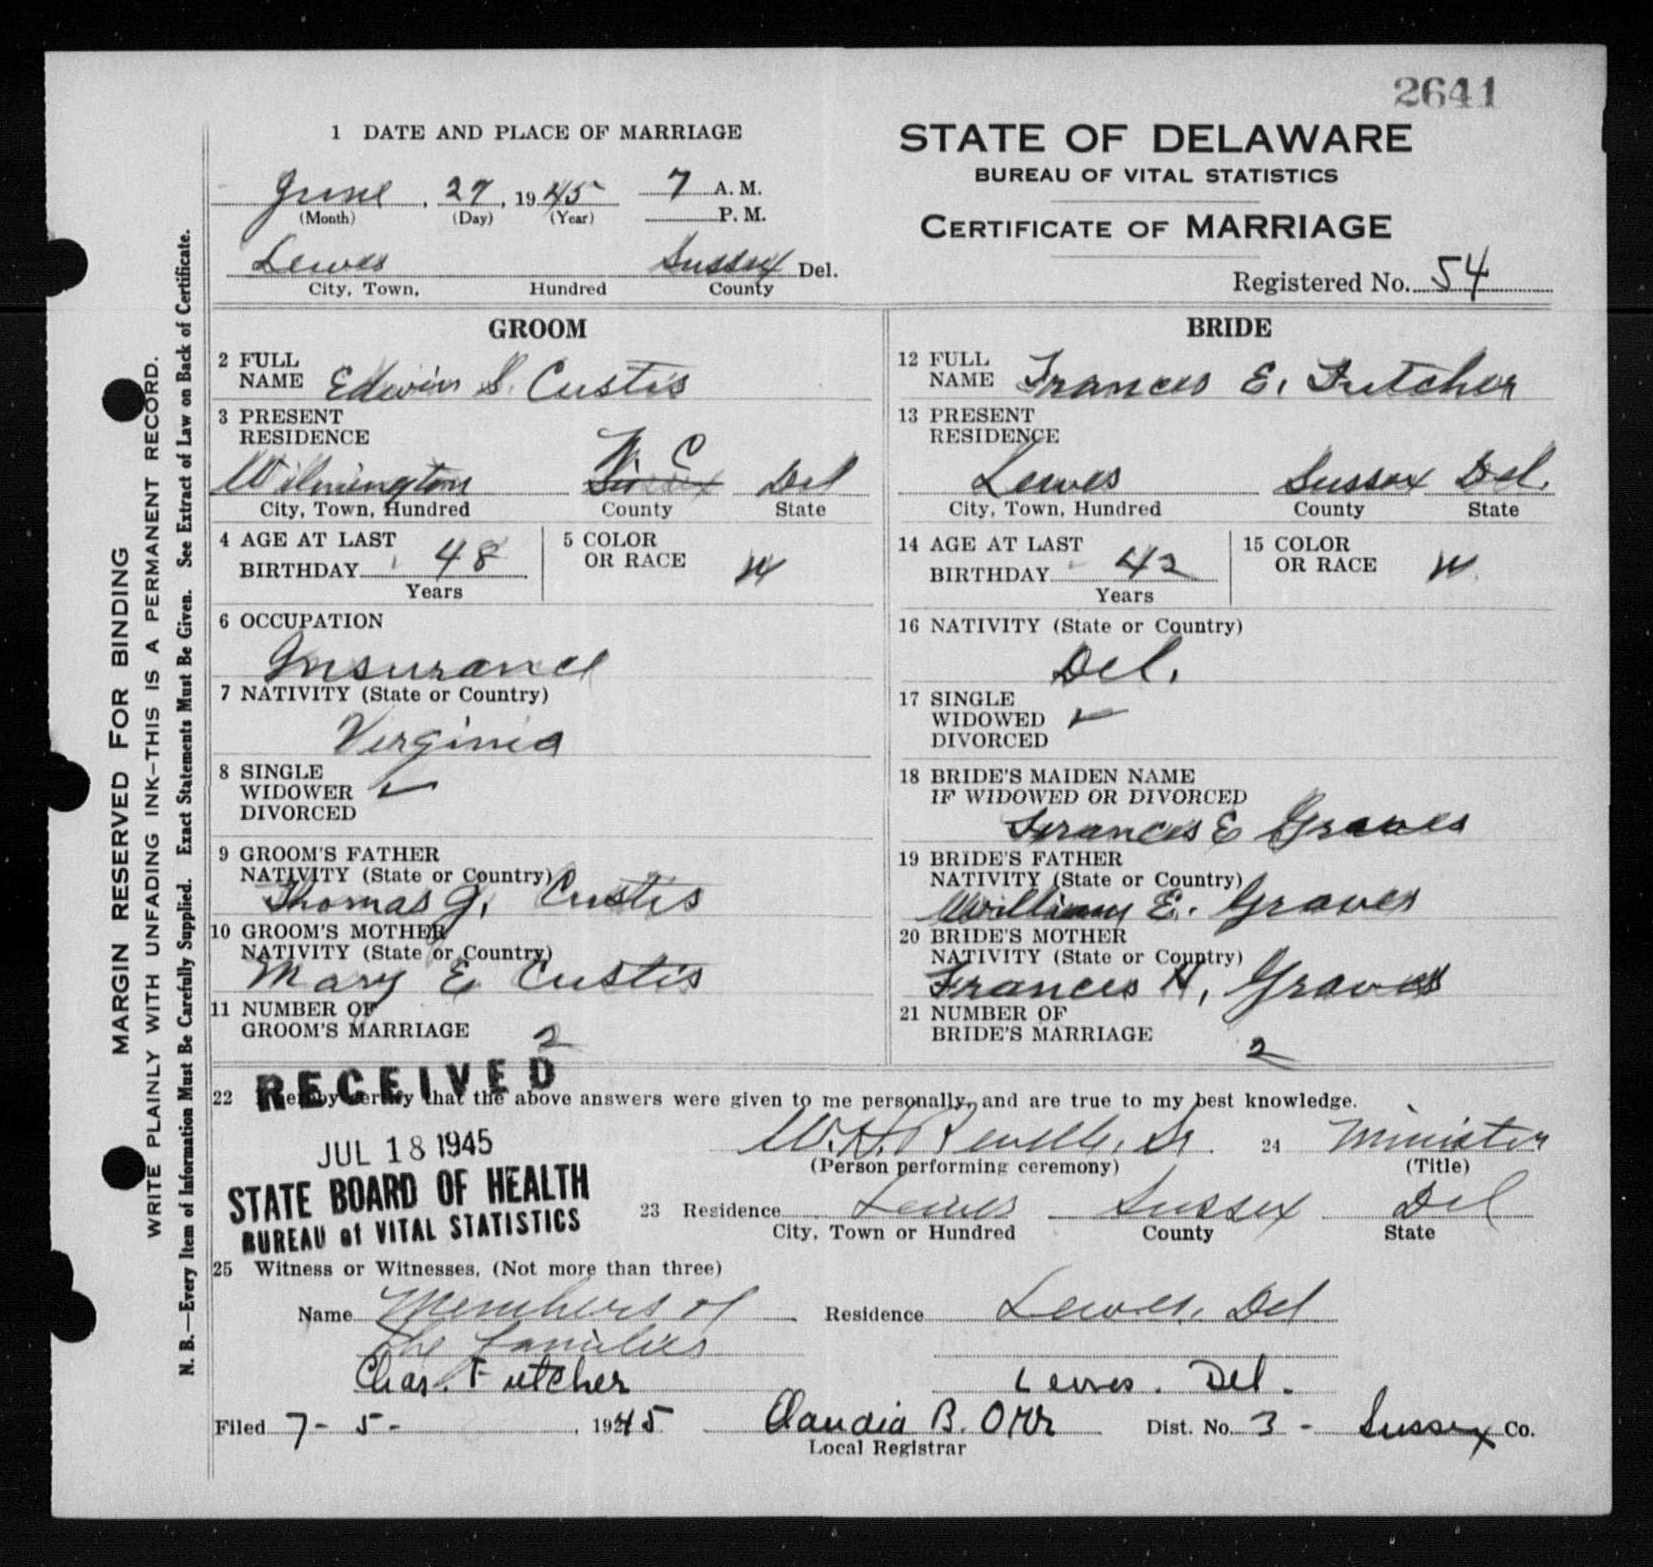 2641
1 DATE AND PLACE OF MARRIAGE
June, 27, 1945 7 A. M.
(Month) (Day) (Year) P. M.
Lewes Sussex Del.
City, Town, Hundred County
STATE OF DELAWARE
BUREAU OF VITAL STATISTICS
CERTIFICATE OF MARRIAGE
Registered No. 54
GROOM
2 FULL
NAME Edwin S. Custis
3 PRESENT
RESIDENCE
N. C
Wilmington Sussex Del
City, Town, Hundred County State
4 AGE AT LAST
BIRTHDAY 48
Years
5 COLOR
OR RACE W
6 OCCUPATION
Insurance
7 NATIVITY (State or Country)
Virginia
8 SINGLE
WIDOWER ✓
DIVORCED
9 GROOM'S FATHER
NATIVITY (State or Country)
Thomas J. Custis
10 GROOM'S MOTHER
NATIVITY (State or Country)
Mary E Custis
11 NUMBER OF
GROOM'S MARRIAGE 2
BRIDE
12 FULL
NAME Frances E. Futcher
13 PRESENT
RESIDENCE
Lewes Sussex Del.
City, Town, Hundred County State
14 AGE AT LAST
BIRTHDAY 42
Years
15 COLOR
OR RACE W.
16 NATIVITY (State or Country)
Del.
17 SINGLE
WIDOWED ✓
DIVORCED
18 BRIDE'S MAIDEN NAME
IF WIDOWED OR DIVORCED
Frances E Graves
19 BRIDE'S FATHER
NATIVITY (State or Country)
William E. Graves
20 BRIDE'S MOTHER
NATIVITY (State or Country)
Frances H. Graves
21 NUMBER OF
BRIDE'S MARRIAGE 2
22 I hereby certify that the above answers were given to me personally, and are true to my best knowledge.
RECEIVED
JUL 18 1945
STATE BOARD OF HEALTH
BUREAU of VITAL STATISTICS
W. H. Revelle, Sr. 24 Minister
(Person performing ceremony) (Title)
23 Residence Lewes Sussex Del
City, Town or Hundred County State
25 Witness or Witnesses, (Not more than three)
Name Members of Residence Lewes, Del
the families
Chas. Futcher Lewes. Del.
Filed 7-5-, 1945 Claudia B. Orr Dist. No. 3 - Sussex Co.
Local Registrar
MARGIN RESERVED FOR BINDING
WRITE PLAINLY WITH UNFADING INK—THIS IS A PERMANENT RECORD.
N. B.—Every Item of Information Must Be Carefully Supplied. Exact Statements Must Be Given. See Extract of Law on Back of Certificate.